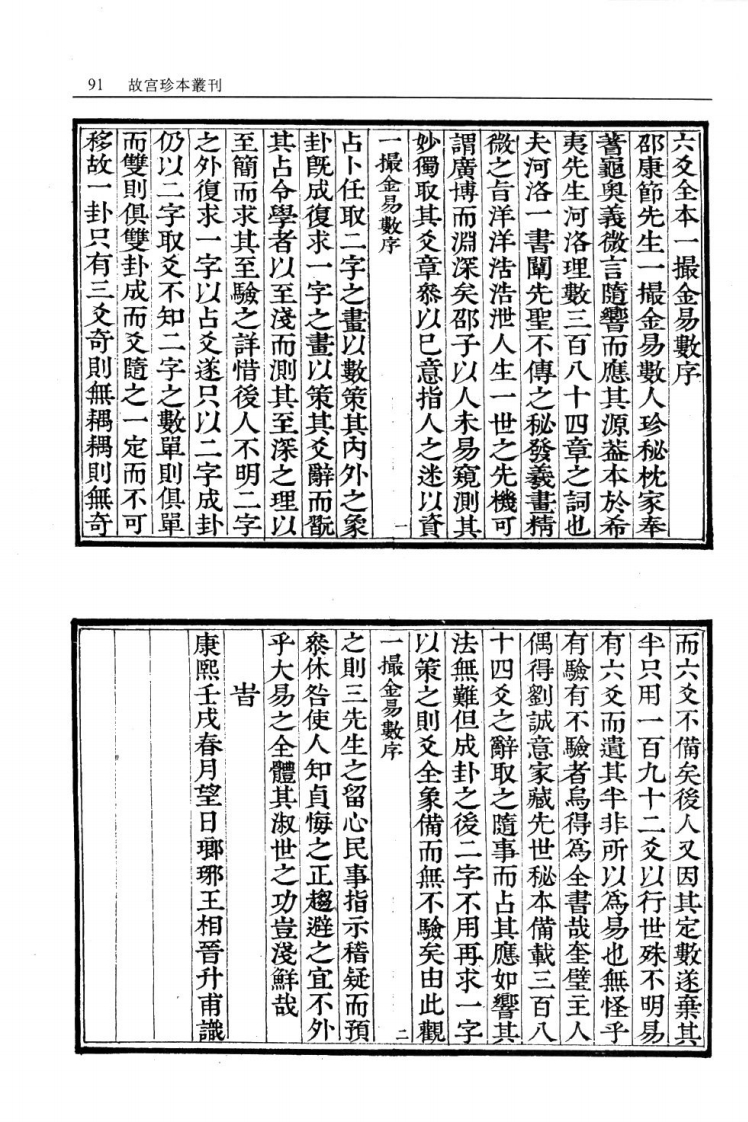 91 故宮珍本叢刊
六爻全本一撮金易數序
邵康節先生一撮金易數人珍秘枕家奉
蓍龜奧義微言隨響而應其源葢本於希
夷先生河洛理數三百八十四章之詞也
夫河洛一書闡先聖不傳之秘發羲畫精
微之旨洋洋浩浩泄人生一世之先機可
謂廣博而淵深矣邵子以人未易窺測其
妙獨取其爻章叅以已意指人之迷以資
一撮金易數序 一
占卜任取二字之畫以數策其內外之象
卦旣成復求一字之畫以策其爻辭而翫
其占令學者以至淺而測其至深之理以
至簡而求其至驗之詳惜後人不明二字
之外復求一字以占爻遂只以二字成卦
仍以二字取爻不知二字之數單則俱單
而雙則俱雙卦成而爻隨之一定而不可
移故一卦只有三爻奇則無耦耦則無奇
而六爻不備矣後人又因其定數遂棄其
半只用一百九十二爻以行世殊不明易
有六爻而遺其半非所以為易也無怪乎
有驗有不驗者烏得為全書哉奎璧主人
偶得劉誠意家藏先世秘本備載三百八
十四爻之辭取之隨事而占其應如響其
法無難但成卦之後二字不用再求一字
以策之則爻全象備而無不驗矣由此觀
一撮金易數序 二
之則三先生之留心民事指示稽疑而預
叅休咎使人知貞悔之正趨避之宜不外
乎大易之全體其淑世之功豈淺鮮哉
旹
康熙壬戌春月望日瑯琊王相晉升甫識